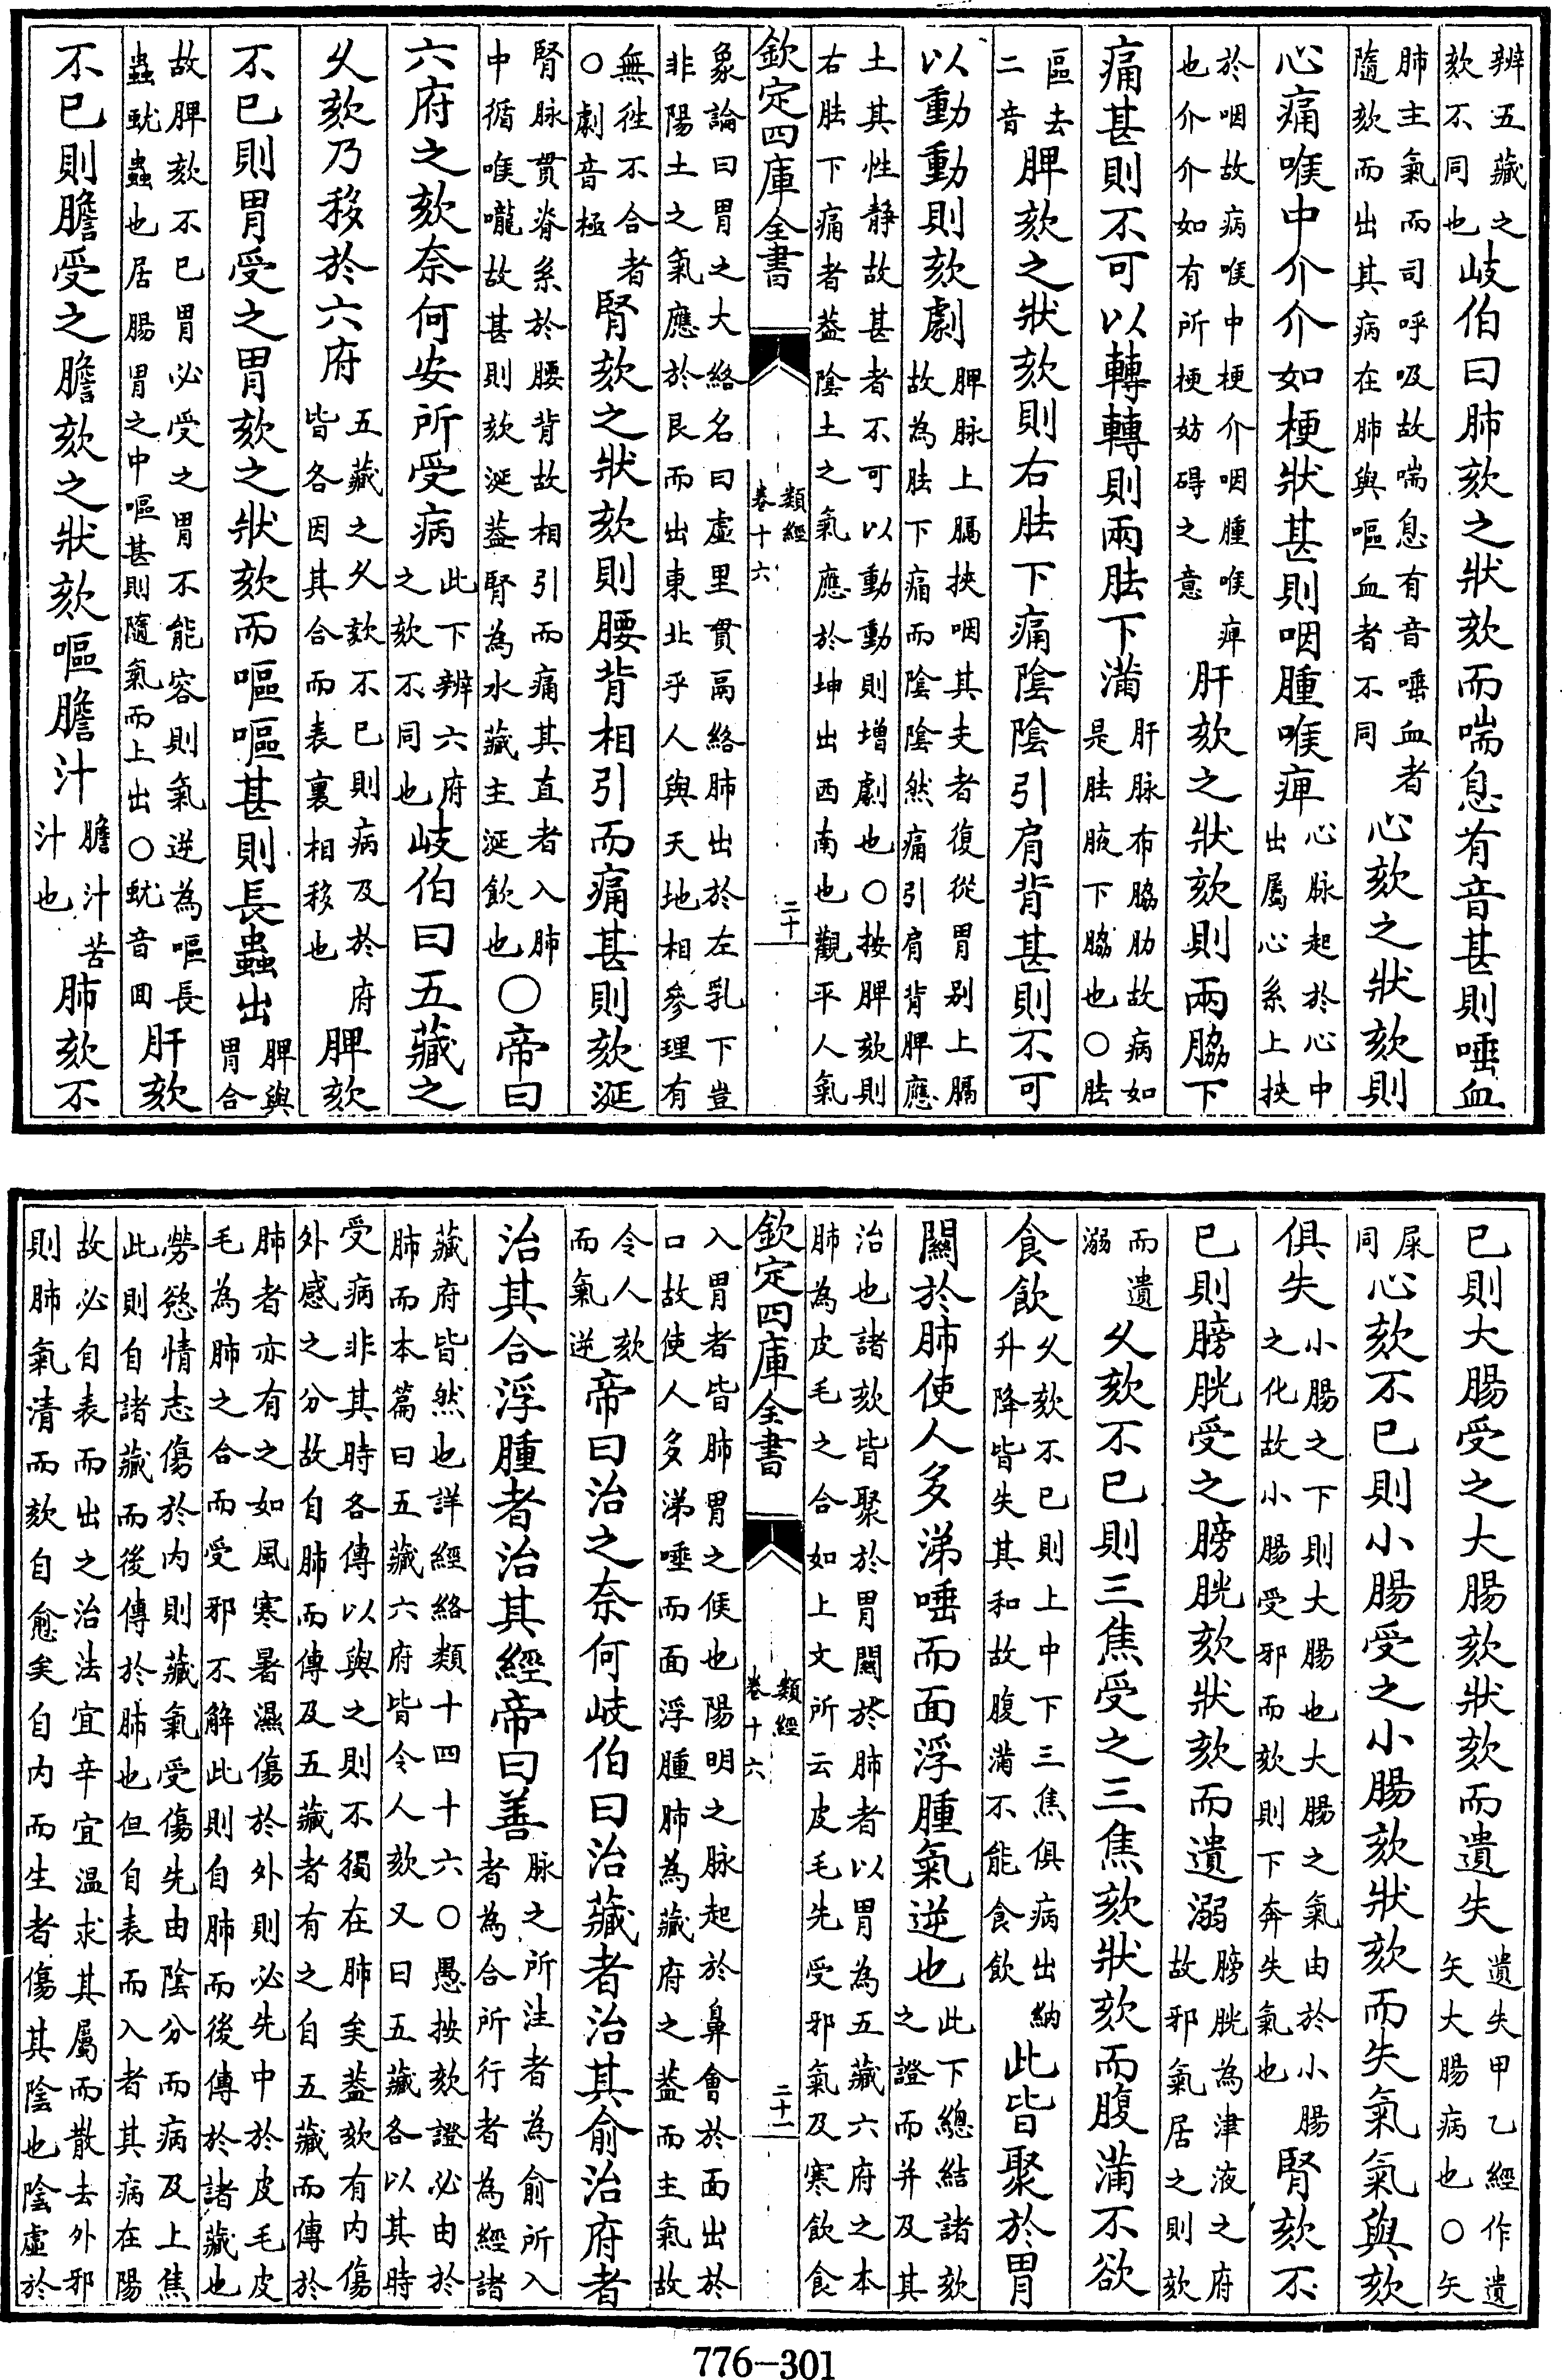 辨五藏之欬不同也岐伯曰肺欬之狀欬而喘息有音甚則唾血
肺主氣而司呼吸故喘息有音唾血者隨欬而出其病在肺與嘔血者不同心欬之狀欬則
心痛喉中介介如梗狀甚則咽腫喉痺心脉起於心中出屬心系上挾
於咽故病喉中梗介咽腫喉痺也介介如有所梗妨碍之意肝欬之狀欬則兩脇下
痛甚則不可以轉轉則兩胠下滿肝脉布脇肋故病如是胠腋下脇也○胠
區去二音脾欬之狀欬則右胠下痛陰陰引肩背甚則不可
以動動則欬劇脾脉上膈挾咽其支者復從胃别上膈故為胠下痛而陰陰然痛引肩背脾應
土其性静故甚者不可以動動則增劇也○按脾欬則右胠下痛者葢陰土之氣應於坤出西南也觀平人氣
欽定四庫全書 類經卷十六 二十
象論曰胃之大絡名曰虚里貫鬲絡肺出於左乳下豈非陽土之氣應於艮而出東北乎人與天地相參理有
無徃不合者○劇音極腎欬之狀欬則腰背相引而痛甚則欬涎
腎脉貫脊系於腰背故相引而痛其直者入肺中循喉嚨故甚則欬涎葢腎為水藏主涎飲也○帝曰
六府之欬奈何安所受病此下辨六府之欬不同也岐伯曰五藏之
乆欬乃移於六府五藏之乆欬不已則病及於府皆各因其合而表裏相移也脾欬
不已則胃受之胃欬之狀欬而嘔嘔甚則長蟲出脾與胃合
故脾欬不已胃必受之胃不能容則氣逆為嘔長蟲蚘蟲也居腸胃之中嘔甚則隨氣而上出○蚘音囬肝欬
不已則膽受之膽欬之狀欬嘔膽汁膽汁苦汁也肺欬不
已則大腸受之大腸欬狀欬而遺失遺失甲乙經作遺矢大腸病也○矢
屎同心欬不已則小腸受之小腸欬狀欬而失氣氣與欬
俱失小腸之下則大腸也大腸之氣由於小腸之化故小腸受邪而欬則下奔失氣也腎欬不
已則膀胱受之膀胱欬狀欬而遺溺膀胱為津液之府故邪氣居之則欬
而遺溺乆欬不已則三焦受之三焦欬狀欬而腹滿不欲
食飲乆欬不已則上中下三焦俱病出納升降皆失其和故腹滿不能食飲此皆聚於胃
關於肺使人多涕唾而面浮腫氣逆也此下總結諸欬之證而并及其
治也諸欬皆聚於胃關於肺者以胃為五藏六府之本肺為皮毛之合如上文所云皮毛先受邪氣及寒飲食
欽定四庫全書 類經卷十六 二十一
入胃者皆肺胃之候也陽明之脉起於鼻會於面出於口故使人多涕唾而面浮腫肺為藏府之葢而主氣故
令人欬而氣逆帝曰治之奈何岐伯曰治藏者治其俞治府者
治其合浮腫者治其經帝曰善脉之所注者為俞所入者為合所行者為經諸
藏府皆然也詳經絡類十四十六○愚按欬證必由於肺而本篇曰五藏六府皆令人欬又曰五藏各以其時
受病非其時各傳以與之則不獨在肺矣葢欬有内傷外感之分故自肺而傳及五藏者有之自五藏而傳於
肺者亦有之如風寒暑濕傷於外則必先中於皮毛皮毛為肺之合而受邪不解此則自肺而後傳於諸藏也
勞慾情志傷於内則藏氣受傷先由陰分而病及上焦此則自諸藏而後傳於肺也但自表而入者其病在陽
故必自表而出之治法宜辛宜温求其屬而散去外邪則肺氣清而欬自愈矣自内而生者傷其陰也陰虚於
776-301